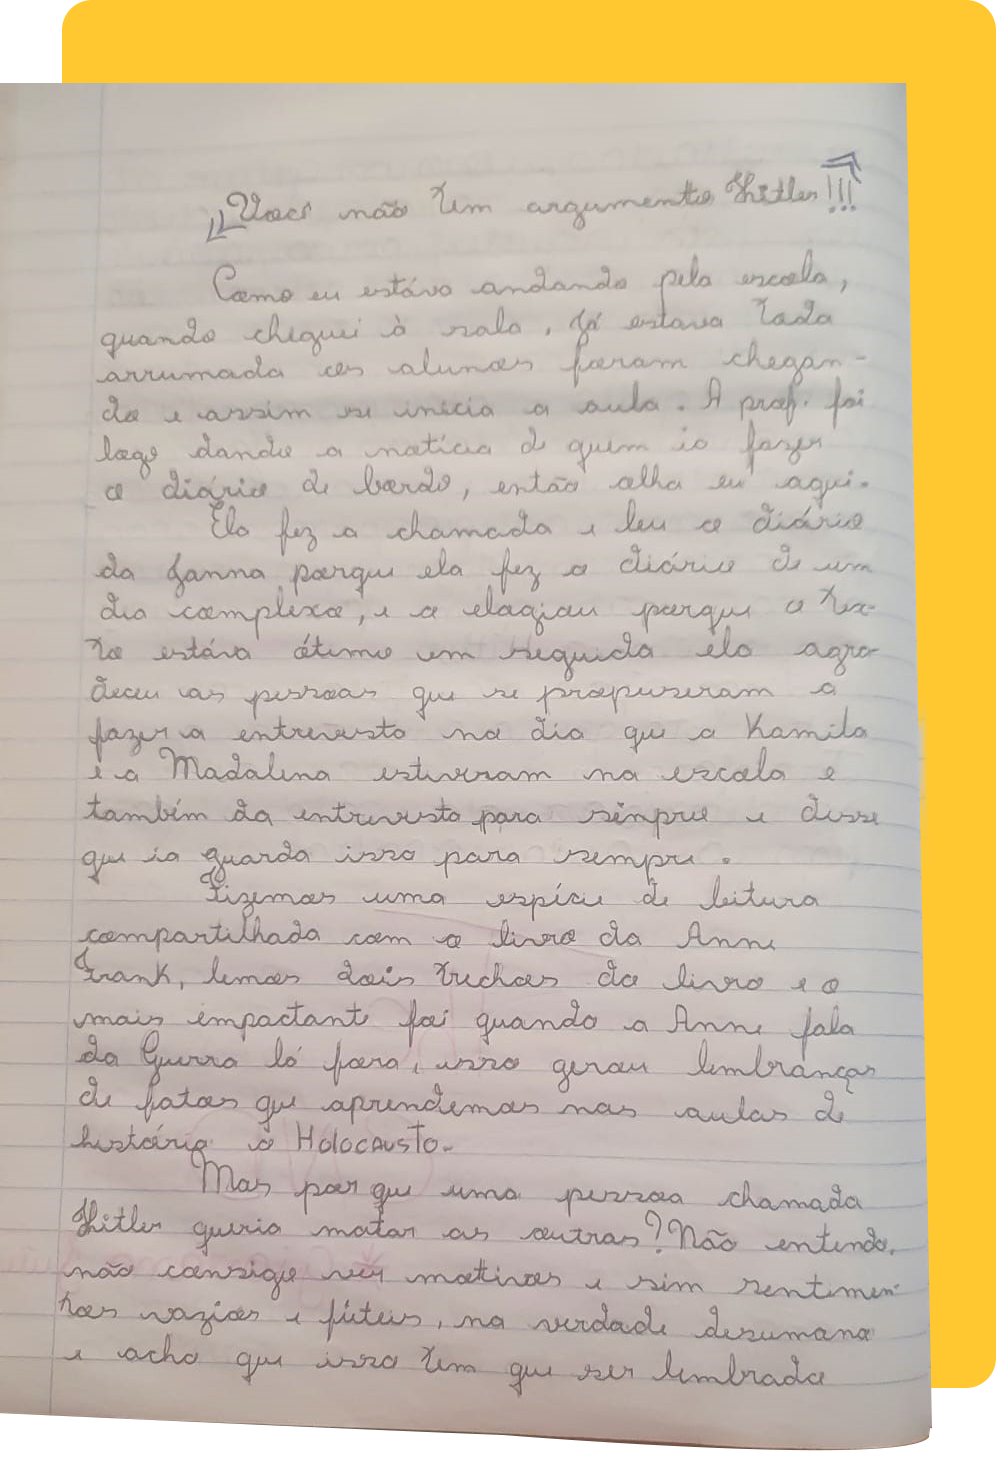 "Você não tem argumento Hitler!!!"
Como eu estáva andando pela escola,
quando cheguei à sala, já estava toda
arrumada os alunos foram chegan-
do e assim se inicia a aula. A prof. foi
logo dando a notícia de quem ia fazer
o diário de bordo, então olha eu aqui.
Ela fez a chamada e leu o diário
da Janna porque ela fez o diário de um
dia complexo, e a elogiou porque o tex-
to estáva ótimo em seguida ela agra-
deceu as pessoas que se propuseram a
fazer a entrevista no dia que a Kamila
e a Madalena estiveram na escola e
também da entrevista para sempre e disse
que ia guarda isso para sempre.
Fizemos uma espécie de leitura
compartilhada com o livro da Anne
Frank, lemos dois trechos do livro e o
mais impactante foi quando a Anne fala
da Guerra lá fora, isso gerou lembranças
de fatos que aprendemos nas aulas de
história o Holocausto.
Mas por que uma pessoa chamada
Hitler queria matar as outras? Não entendo,
não consigo ver motivos e sim sentimen-
tos vazios e fúteis, na verdade desumano
e acho que isso tem que ser lembrado